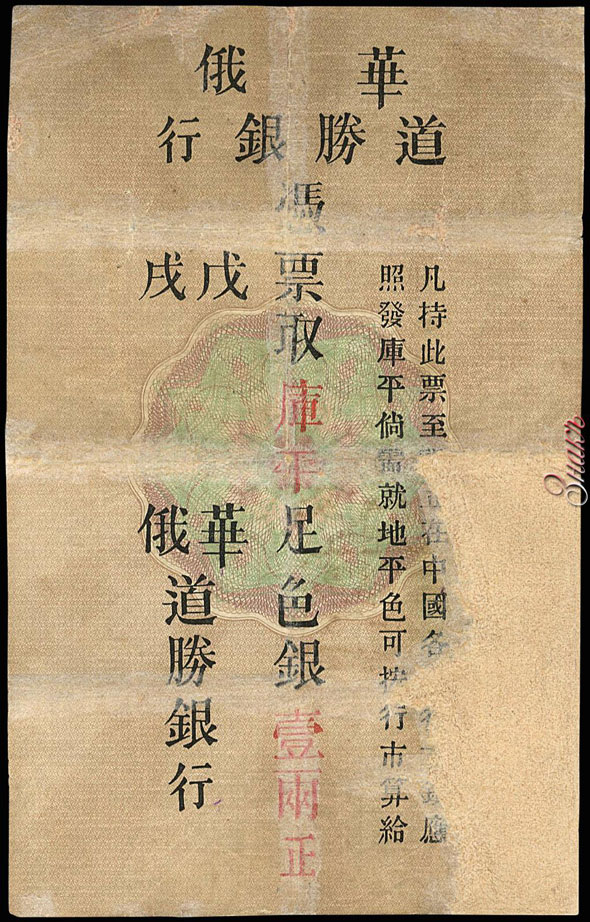 華俄
道勝銀行
凡持此票至在中國各應
照發庫平倘需就地平色可按行市算給
憑票取庫平足色銀壹兩正
戊戌
華俄
道勝銀行
Знакъ